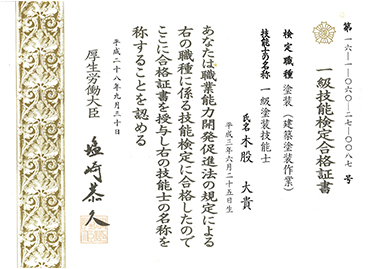 第一六ー一ー〇六〇ー二七ー〇〇八七号
一級技能検定合格証書
検定職種 塗装(建築塗装作業)
技能士の名称 一級塗装技能士
氏名 木股 大貴
平成三年六月二十五日生
あなたは職業能力開発促進法の規定による
右の職種に係る技能検定に合格したので
ここに合格証書を授与し右の技能士の名称を
称することを認める
平成二十八年九月三十日
厚生労働大臣 塩崎恭久